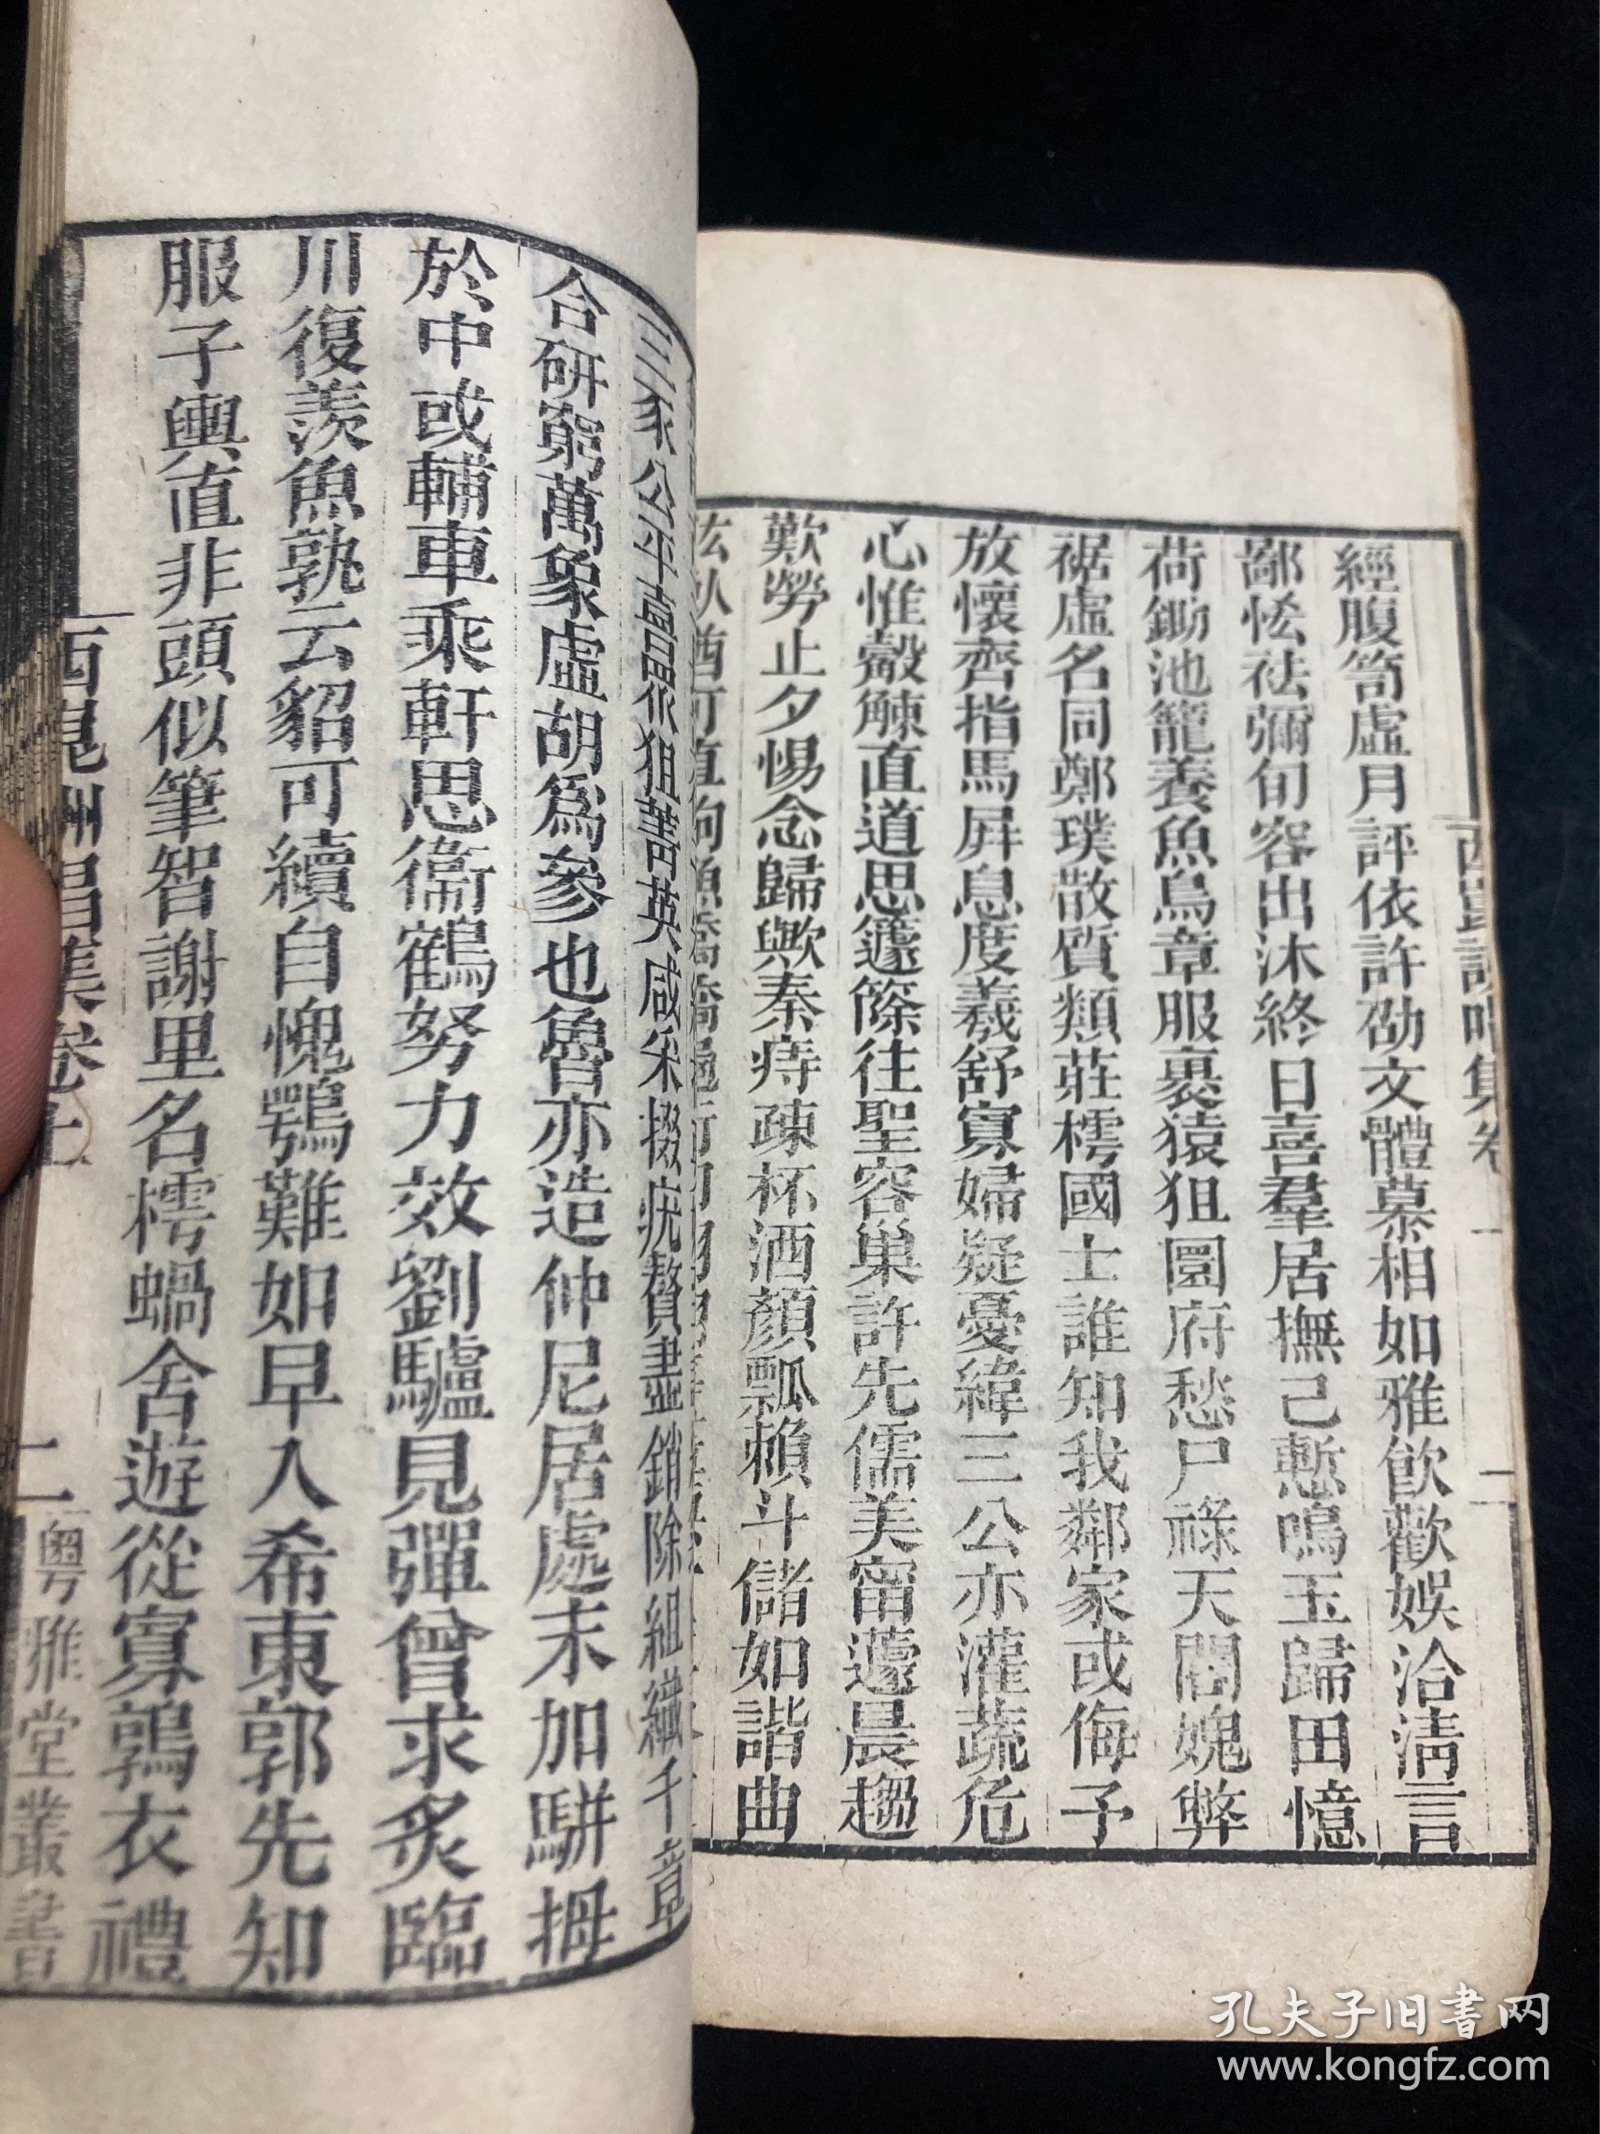 經腹笥虛月評依許劭文體慕相如雅飲歡娛洽清言
鄙恡祛彌旬容出沐終日喜羣居撫己慙鳴玉歸田憶
荷鋤池籠養魚鳥章服裹猿狙圜府愁尸祿天閽媿弊
裾虛名同鄭璞散質類莊樗國士誰知我鄰家或侮予
放懷齊指馬屛息度羲舒寡婦疑憂緯三公亦灌蔬危
心惟觳觫直道思籧篨往聖容巢許先儒美甯蘧晨趨
歎勞止夕惕念歸歟秦痔疎杯酒顏瓢賴斗儲如諧曲
三家公平眞品狙菁英咸采掇疣贅盡銷除組織千章
合研窮萬象虛胡爲參也魯亦造仲尼居處末加駢拇
於中或輔車乘軒思衞鶴努力效劉驢見彈曾求炙臨
川復羨魚孰云貂可續自愧鶚難如早入希東郭先知
服子輿直非頭似筆智謝里名樗蝸舍遊從寡鶉衣禮
西崑酬唱集卷上
二
粤雅堂叢書
孔夫子旧书网
www.kongfz.com